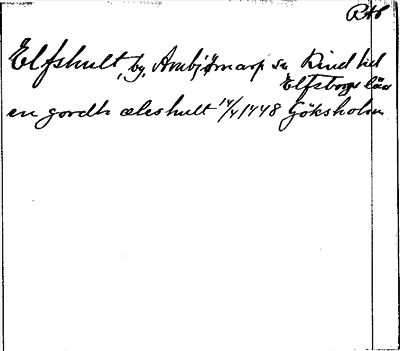 RAp
Elfshult, by, Ambjörnarp sn Kind hd
Elfsborgs län
en gordh æleshult 14/4 1448 Göksholm